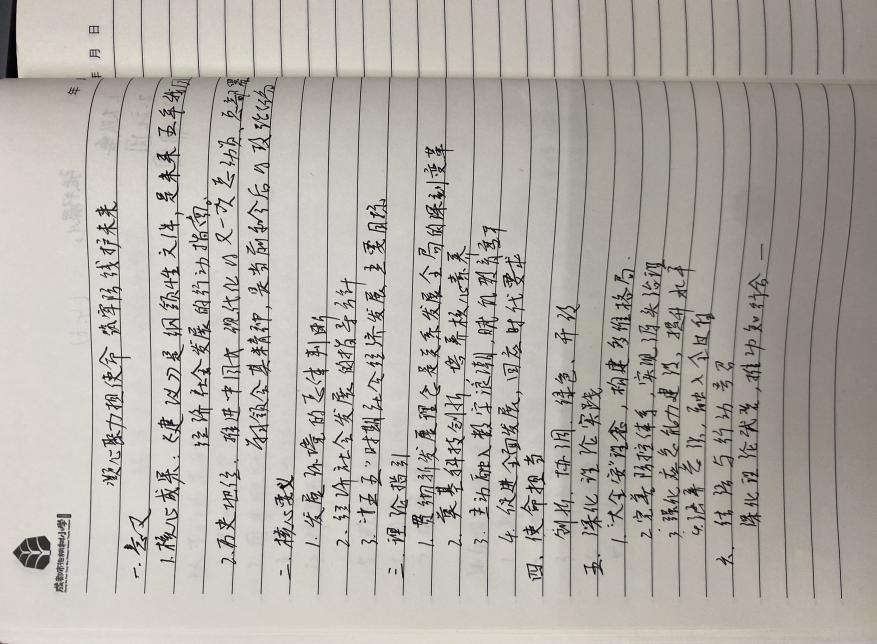 年 月 日
年
成都市泡桐树小学
凝心聚力担使命 筑牢防线护未来
一.意义
1.核心成果:《建议》是纲领性文件,是未来五年我国
经济社会发展的行动指南。
2.历史地位:推进中国式现代化的又一次总动员、总部署
领会其精神,是当前和今后的政治任
二.核心要义
1.发展环境的总体判断
2.经济社会发展的指导方针
3."十五五"时期社会经济发展主要目标
三.理论指引
1.贯彻新发展理念是关系发展全局的深刻变革
2.奠基科技创新,培养核心素养
3.主动融入数字浪潮,赋能教育
4.促进全面发展,回应时代要求
四、使命担当
创新、协调、绿色、开放
五.深化理论实践
1."大安"理念,构建多维格局.
2.完善防控体系,实现源头治理
3.强化应急能力建设,提升水平
4.法率意识,融入全过程
六、结语与行动号召
深化理论武装,推动知行合一